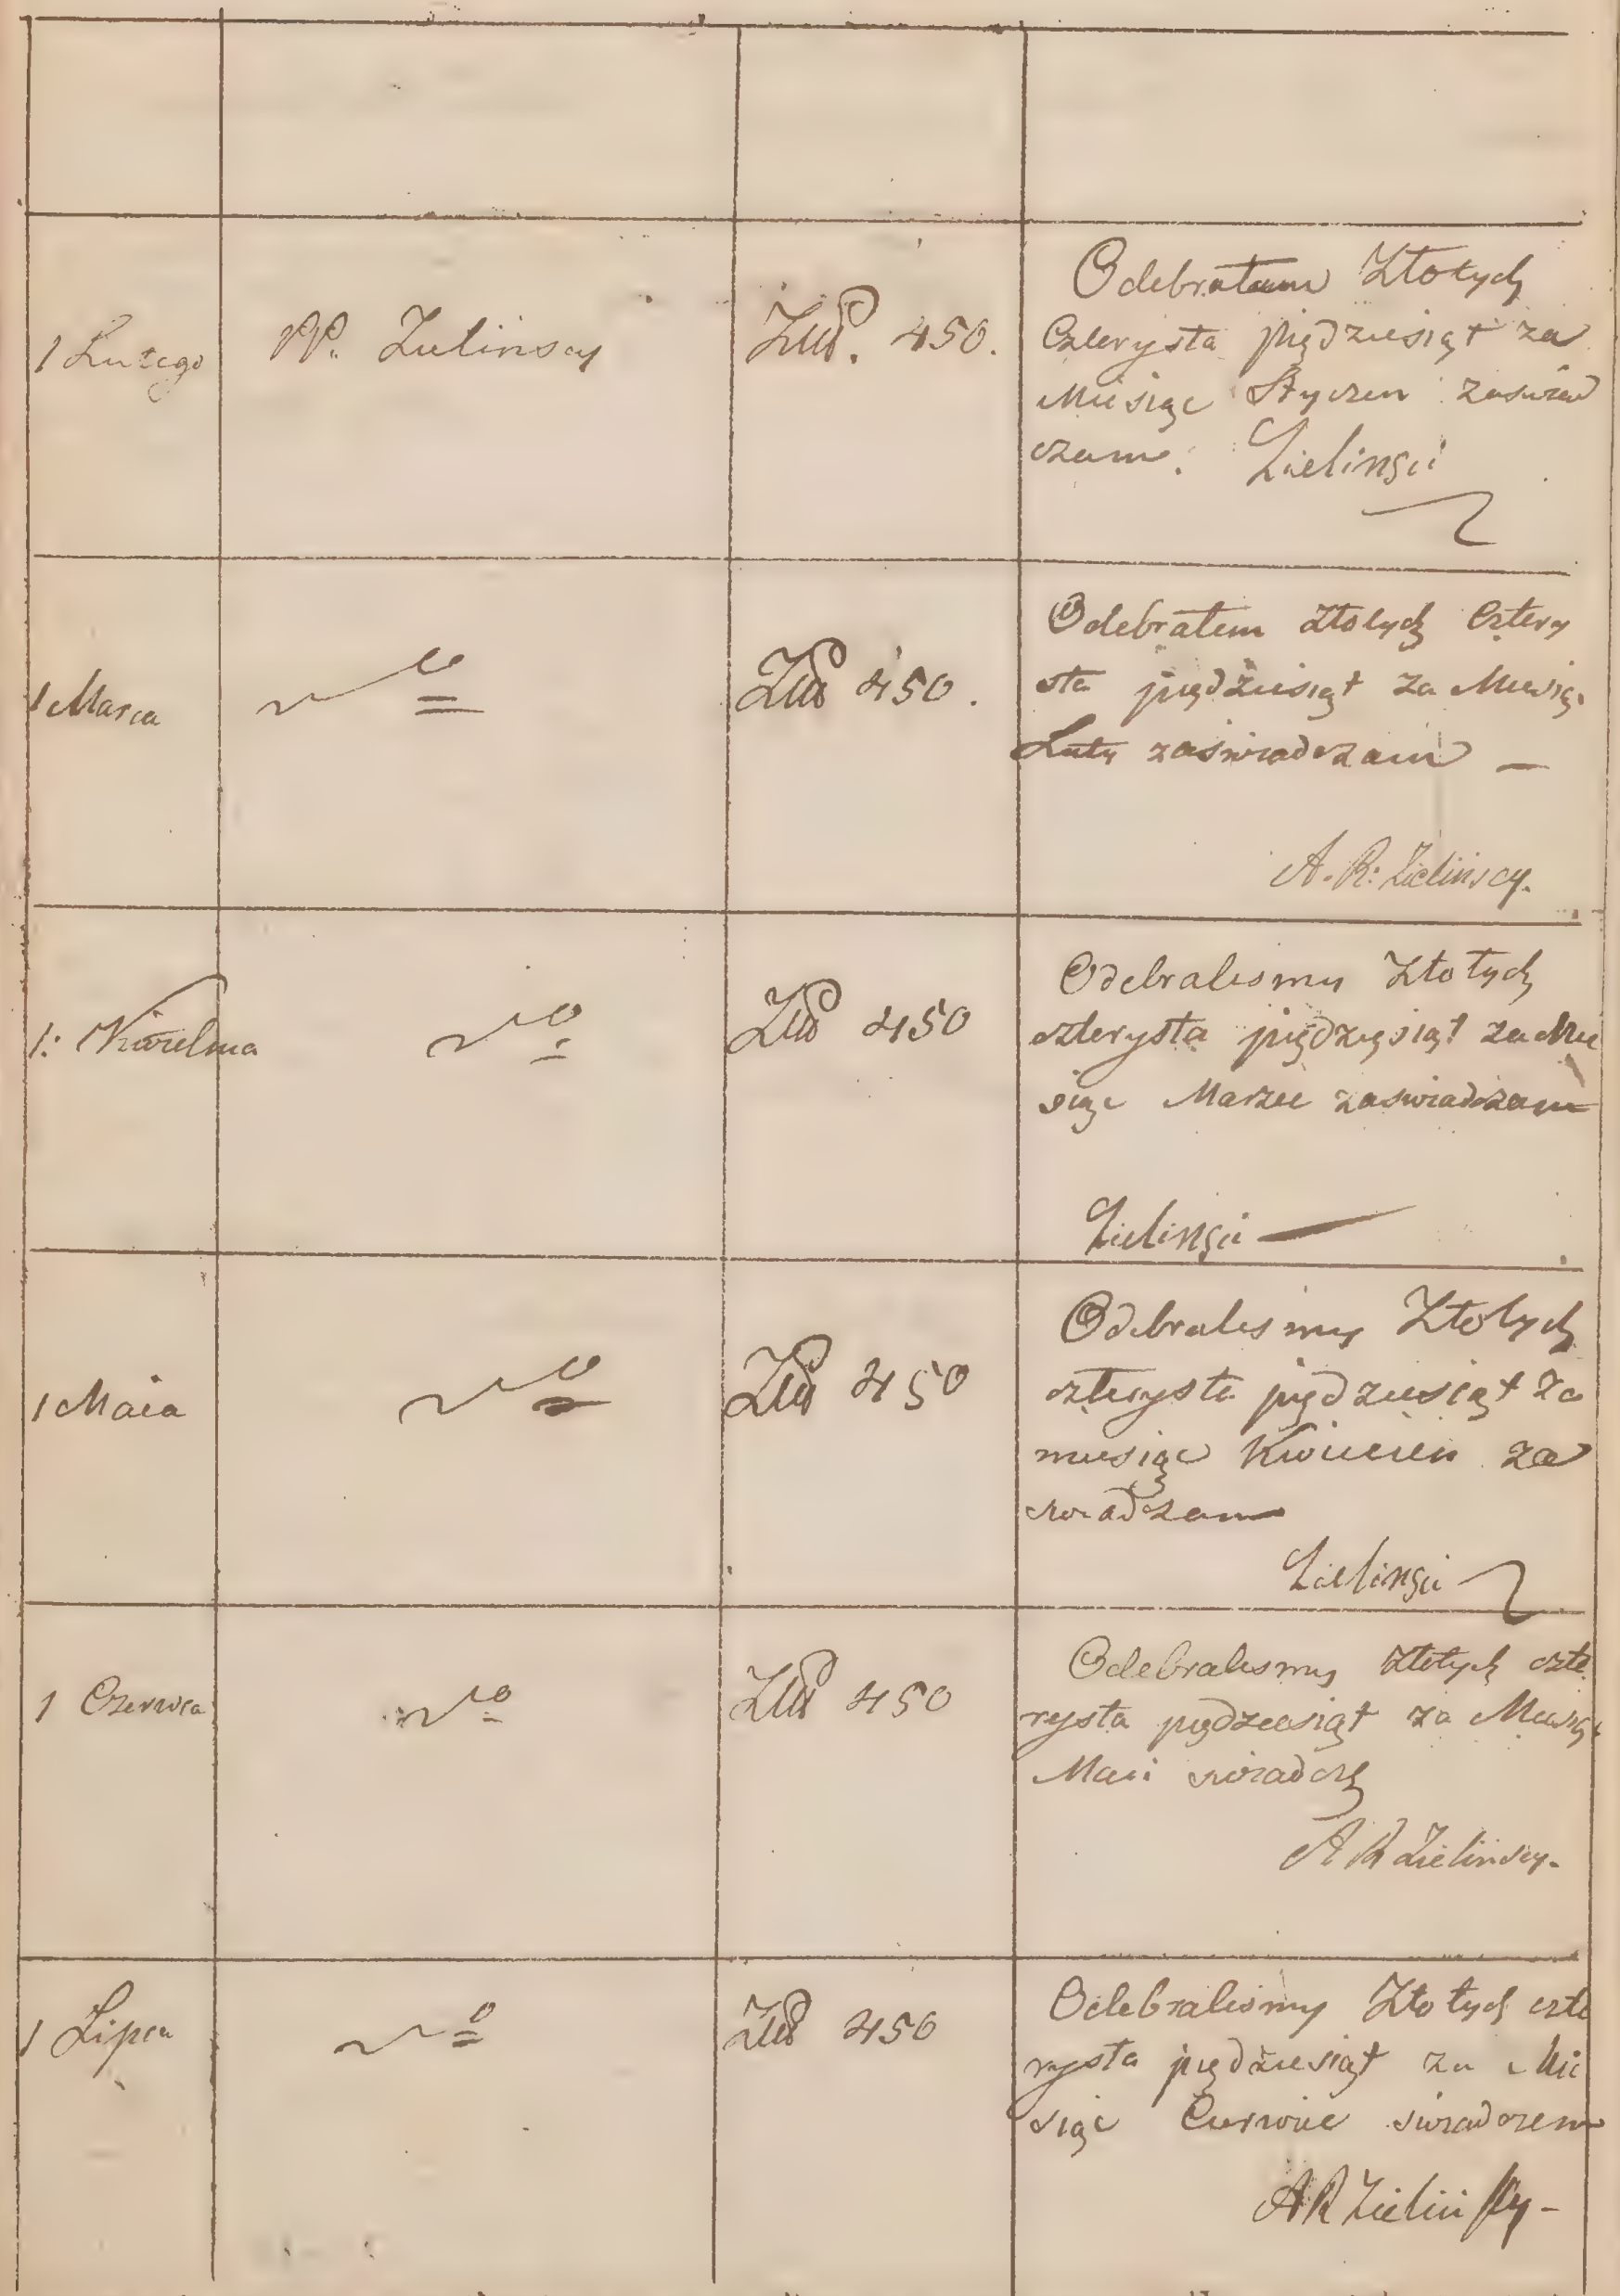 1 Lutego PP. Zielinscy Złłp. 450.
Odebrałam Złotych
Czterysta piędziesiąt za
Miesiąc Styczen zaswiad
czam. Zielinscÿ
1 Marca Złłp 450.
Odebrałem złotych Cztery
sta piędziesiąt za Miesią.
Luty zaświadczam —
A. R: Zielinscy.
1: Kwietnia Złłp 450
Odebralismy Złotych
czterysta piędzięsiąt za Mie
siąc Marzec zaswiadczam
Zielinscÿ
1 Maia Złłp 450
Odebralismy Złotych
czterysta pięd ziesiąt za
miesiąc Kwiecien za
swiadczam
Zielinscÿ
1 Czerwca Złłp 450
Odebralismy złotych czte
rysta piędziesiąt za Miesiąc
Maii swiadczę
A R Zielinscy.
1 Lipca Złłp 450
Odebralismy Złotych czte
rysta piędziesiąt za Mie
siąc Czerwiec swiadczem
A R Zielinscy –